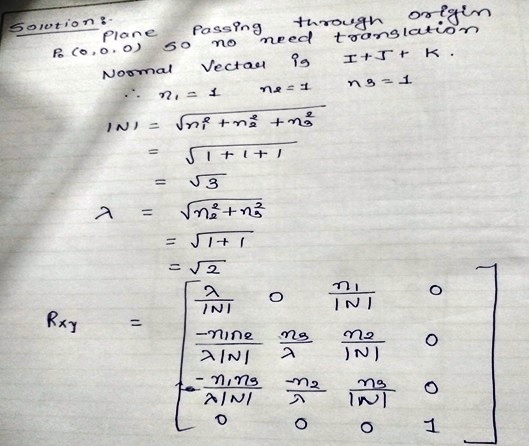 Solution:
Plane Passing through origin
P₀ (0,0,0) so no need translation
Normal Vector is I + J + K.
∴ n₁ = 1 n₂ = 1 n₃ = 1
|N| = √(n₁² + n₂² + n₃²)
= √(1 + 1 + 1)
= √3
λ = √(n₂² + n₃²)
= √(1 + 1)
= √2
Rxy = [ λ/|N| 0 n₁/|N| 0
-n₁n₂/λ|N| n₃/λ n₂/|N| 0
-n₁n₃/λ|N| -n₂/λ n₃/|N| 0
0 0 0 1 ]